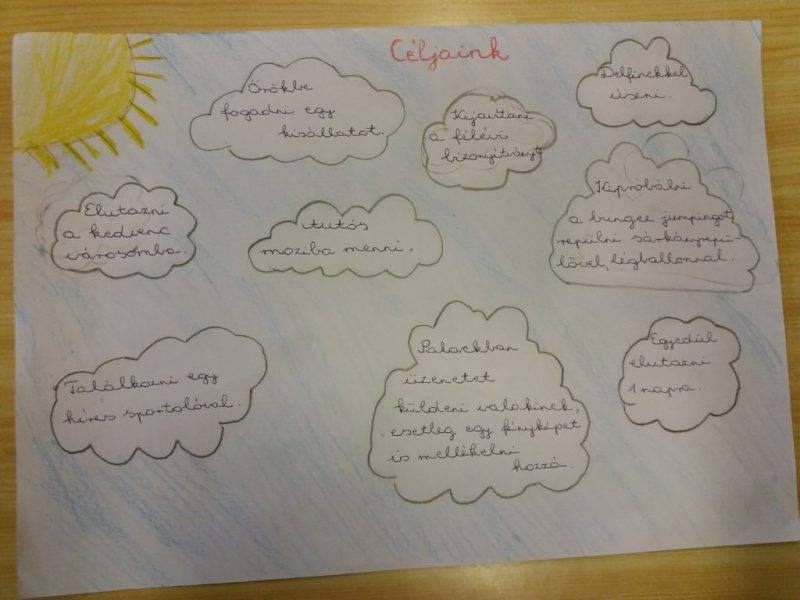 Céljaink
Örökbe
fogadni egy
kisállatot.
Kijavítani
a félévis
bizonyítványt
Delfinekkel
úszni.
Elutazni
a kedvenc
városomba.
Autós
moziba menni.
Kipróbálni
a bungee jumpingot,
repülni sárkányrepü-
lővel, légballonnal.
Találkozni egy
híres sportolóval.
Palackban
üzenetet
küldeni valakinek,
esetleg egy fényképet
is mellékelni
hozzá.
Egyedül
elutazni
1 napra.